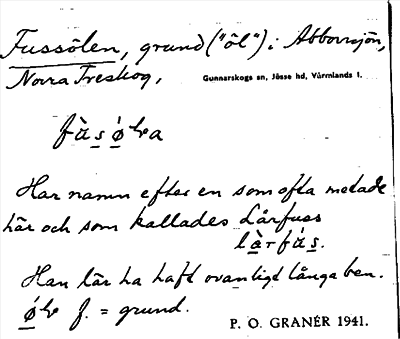 Fussölen, grund ("öl") i Abborrsjön,
Norra Treskog, Gunnarskogs sn, Jösse hd, Värmlands l.
Har namn efter en som ofta metade
här och som kallades Lårfuss
Han lär ha haft ovanligt långa ben.
f. = grund.
P. O. GRANÉR 1941.